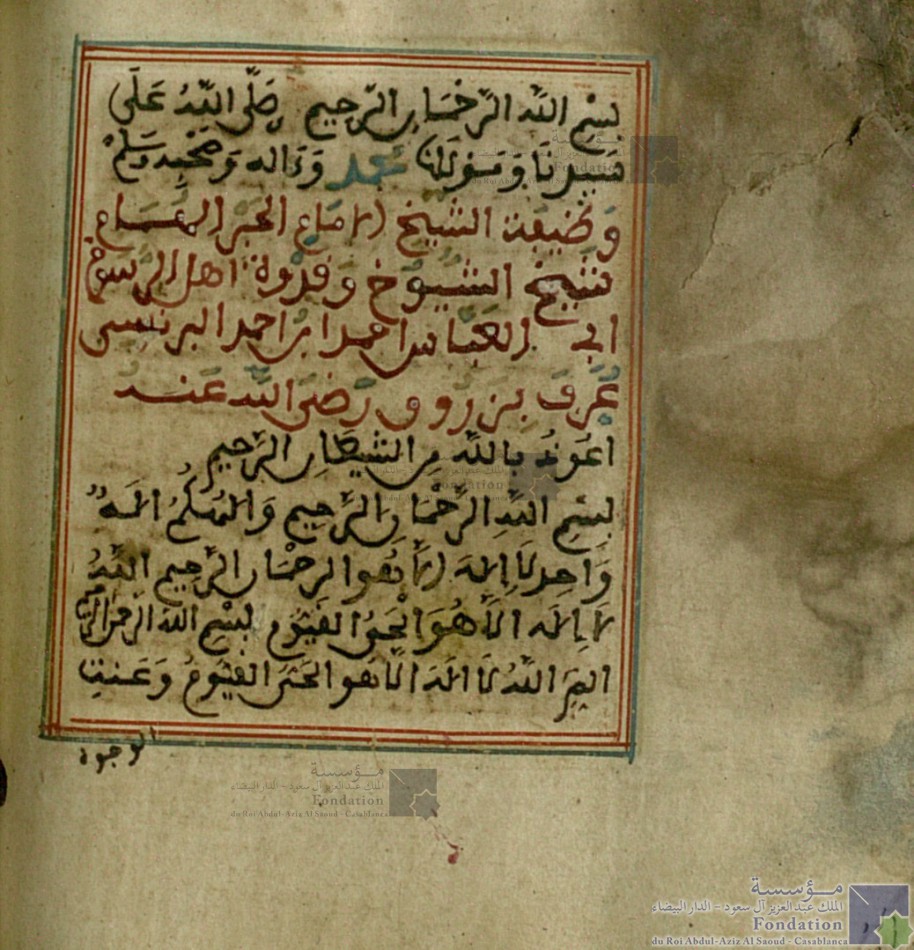 بسم الله الرحمان الرحيم صلى الله على
سيدنا ومولانا محمد وءاله وصحبه وسلم
وظيفة الشيخ الامام الحبر الهمام
شيخ الشيوخ وقدوة اهل الرسوخ
ابي العباس احمد ابن احمد البرنسي
عرف بزروق رضي الله عنه
اعوذ بالله من الشيطان الرجيم
بسم الله الرحمان الرحيم والهكم اله
واحد لا اله الا هو الرحمان الرحيم الله
لا اله الا هو الحي القيوم بسم الله الرحمن الرحيم
الم الله لا اله الا هو الحي القيوم وعنت
الوجوه
مؤسسة
الملك عبد العزيز آل سعود - الدار البيضاء
Fondation
du Roi Abdul-Aziz Al Saoud - Casablanca
مؤسسة
الملك عبد العزيز آل سعود - الدار البيضاء
Fondation
du Roi Abdul-Aziz Al Saoud - Casablanca